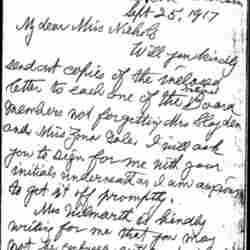 Sept 25, 1917
My dear Miss Nichols
Will you kindly
send out copies of the inclosed
letter to each one of the Board
members not forgetting Mrs Slayden
and Miss Zona Gale. I will ask
you to sign for me with your
initials underneath as I am anxious
to get it off promptly.
Mrs Wilmarth is kindly
writing for me that you may
not be